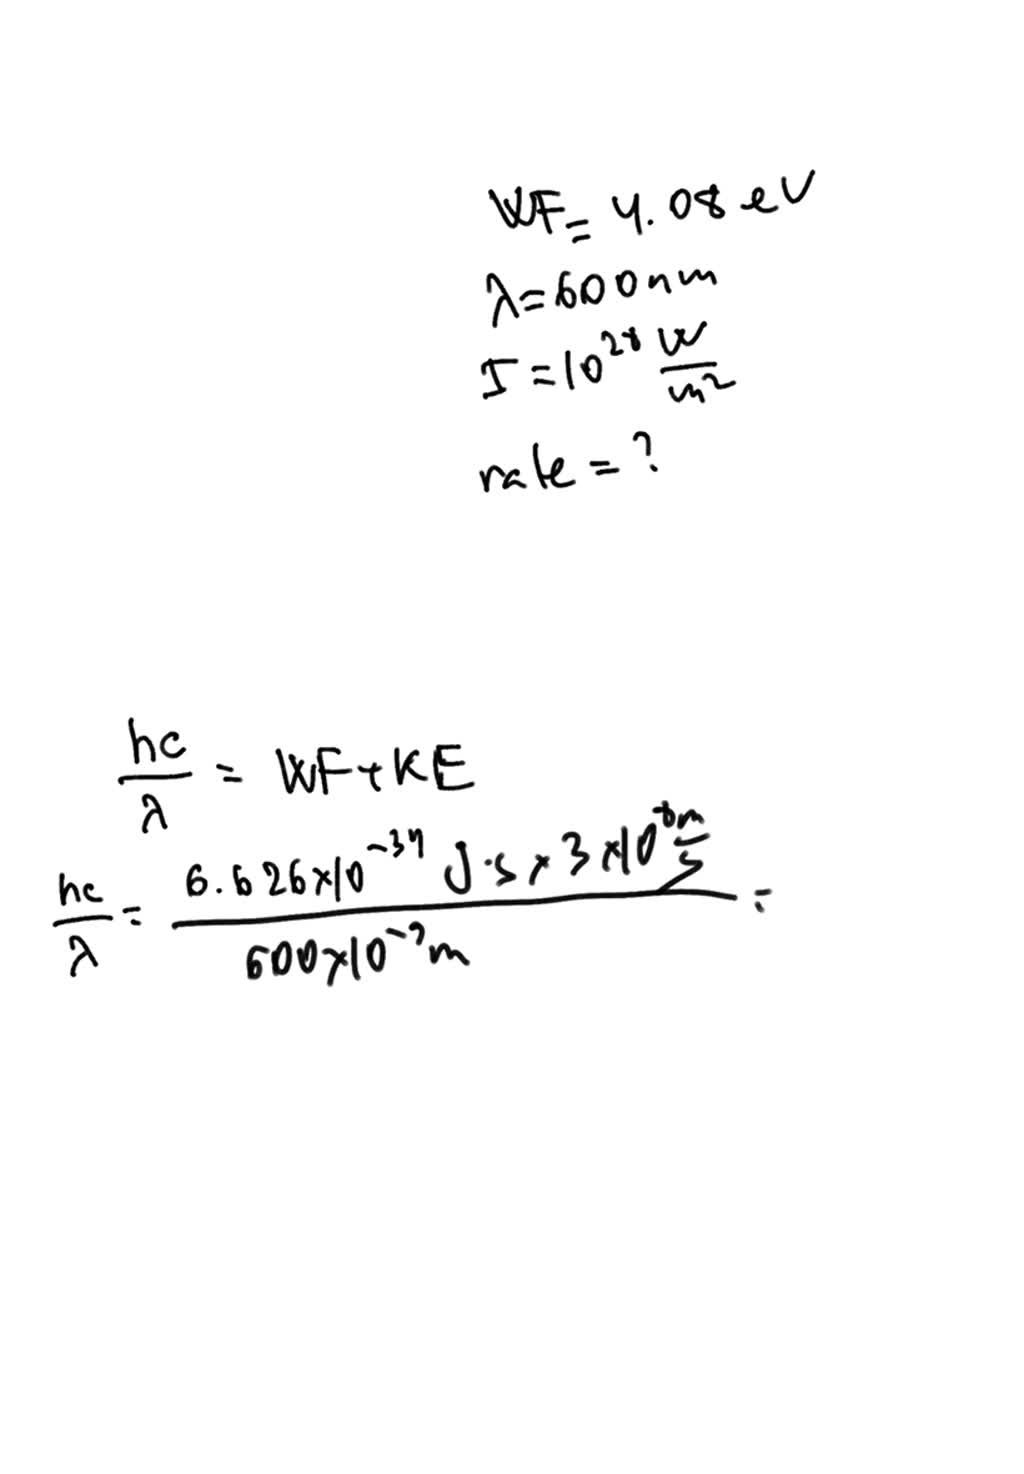 WF = 4.08 eV
λ = 600 nm
I = 10²⁸ W/m²
rate = ?
hc/λ = WF + KE
hc/λ = (6.626×10⁻³⁴ J·s × 3×10⁸ m/s)/(600×10⁻⁹ m) =